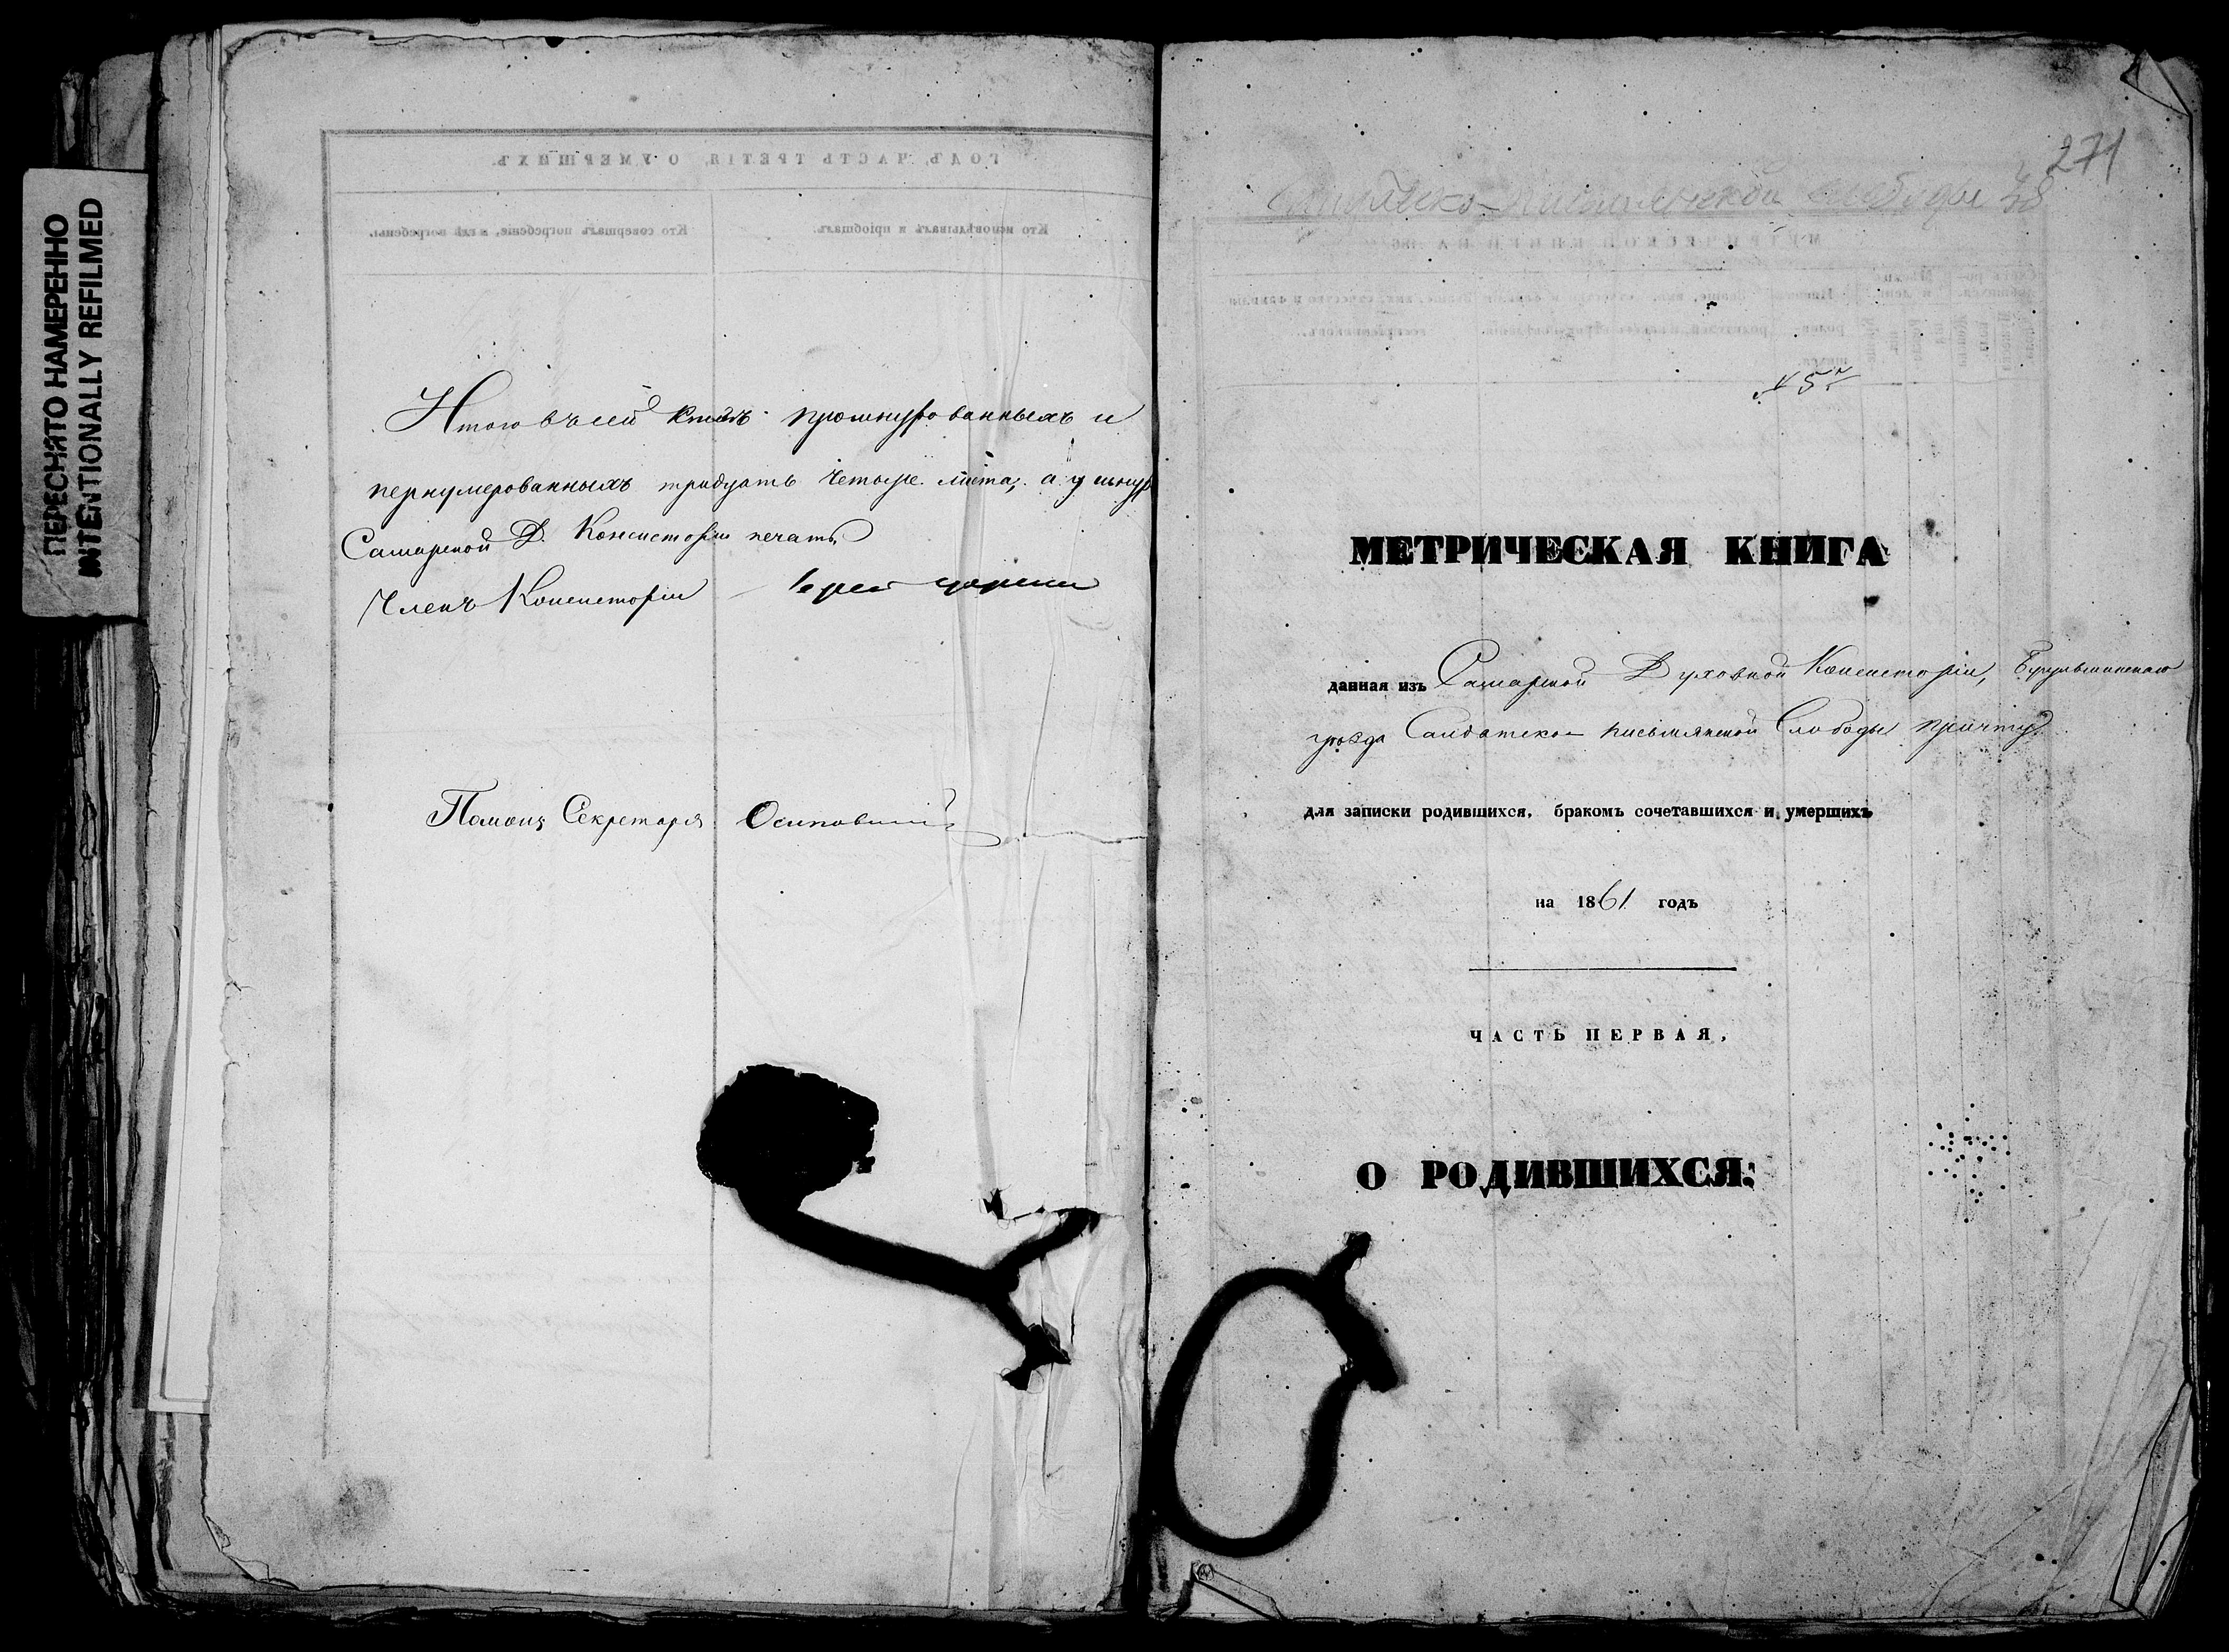 ПЕРЕСНЯТО НАМЕРЕННО
INTENTIONALLY REFILMED
ГОДЪ, ЧАСТЬ ТРЕТІЯ, О УМЕРШИХЪ.
Кто исповѣдывалъ и пріобщалъ.
Кто совершалъ погребеніе, и гдѣ погребены.
Итого въ сей книгѣ прошнурованныхъ и
перн​умерованныхъ тридцать четыре листа, а у шнура
Самарской Д. Консисторіи печать
Членъ Консисторіи Іерей
Помощ Секретаря Осиповскій
271
38
№ 5й
МЕТРИЧЕСКАЯ КНИГА
данная изъ Самарской Духовной Консисторіи, Бугульминскаго
уѣзда Солдатско-письмянской Слободы причту
для записки родившихся, бракомъ сочетавшихся и умершихъ
на 1861 годъ
ЧАСТЬ ПЕРВАЯ,
О РОДИВШИХСЯ: